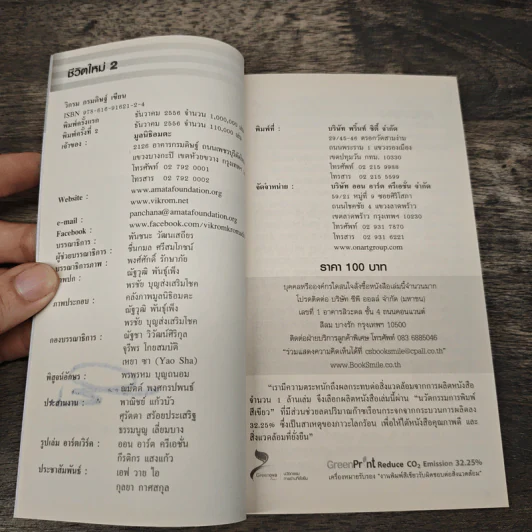 ชีวิตใหม่ 2
วิกรม กรมดิษฐ์ เขียน
ISBN 978-616-91621-2-4
พิมพ์ครั้งแรก ธันวาคม 2556 จำนวน 1,000,000
พิมพ์ครั้งที่ 2 ธันวาคม 2556 จำนวน 110,000
เจ้าของ : มูลนิธิอมตะ
2126 อาคารกรมดิษฐ์ ถนนเพชรบุรี
แขวงบางกะปิ เขตห้วยขวาง กรุงเทพฯ
โทรศัพท์ 02 792 0001
โทรสาร 02 792 0002
Website : www.amatafoundation.org
www.vikrom.net
e-mail : panchana@amatafoundation.org
Facebook : www.facebook.com/vikromkrom
บรรณาธิการ : พันชนะ วัฒนเสถียร
ผู้ช่วยบรรณาธิการ : ชื่นกมล ศรีสมโภชน์
บรรณาธิการภาพ : พงศ์ศักดิ์ รักษาภัย
ณัฐวุฒิ พันธุ์เพ็ง
พรชัย บุญส่งเสริมโชค
ภาพประกอบ : คลังภาพมูลนิธิอมตะ
ณัฐวุฒิ พันธุ์เพ็ง
พรชัย บุญส่งเสริมโชค
กองบรรณาธิการ : ณัฐชา วิวัฒน์ศิริกุล
จุรีพร ไกยสมบัติ
เหยา ซา (Yao Sha)
พิสูจน์อักษร : พรพรหม บุญถนอม
พงศกรปพนธ์
ประสานงาน : พาณิชย์ แก้วบัว
ศุรัตดา สร้อยประเสริฐ
ธรรมนูญ เลี่ยนบาง
รูปเล่ม อาร์ตเวิร์ค : ออน อาร์ต ครีเอชั่น
กีรติกร แสงแก้ว
ประชาสัมพันธ์ : เอฟ วาย ไอ
กุลยา กาศสกุล
พิมพ์ที่ : บริษัท พริ้นท์ ซิตี้ จำกัด
29/45-46 ตรอกวัดสามง่าม
ถนนพระราม 1 แขวงรองเมือง
เขตปทุมวัน กทม. 10330
โทรศัพท์ 02 215 9988
โทรสาร 02 215 5599
จัดจำหน่าย : บริษัท ออน อาร์ต ครีเอชั่น จำกัด
59/21 หมู่ที่ 9 ซอยศิริโสภา
ถนนโชคชัย 4 แขวงลาดพร้าว
เขตลาดพร้าว กรุงเทพฯ 10230
โทรศัพท์ 02 931 7870
โทรสาร 02 931 6221
www.onartgroup.com
ราคา 100 บาท
บุคคลหรือองค์กรใดสนใจสั่งซื้อหนังสือเล่มนี้จำนวนมาก
โปรดติดต่อ บริษัท ซีพี ออลล์ จำกัด (มหาชน)
เลขที่ 1 อาคารสิวะดล ชั้น 4 ถนนคอนแวนต์
สีลม บางรัก กรุงเทพฯ 10500
ติดต่อฝ่ายบริการลูกค้าพิเศษ โทรศัพท์ 083 6885046
"ร่วมแสดงความคิดเห็นได้ที่ csbooksmile@cpall.co.th"
www.BookSmile.co.th
"เรามีความตระหนักถึงผลกระทบต่อสิ่งแวดล้อมจากการผลิตหนังสือ
จำนวน 1 ล้านเล่ม จึงเลือกผลิตหนังสือเล่มนี้ผ่าน "นวัตกรรมการพิมพ์
สีเขียว" ที่มีส่วนช่วยลดปริมาณก๊าซเรือนกระจกจากกระบวนการผลิตลง
32.25% ซึ่งเป็นสาเหตุของภาวะโลกร้อน เพื่อให้ได้หนังสือคุณภาพดี และ
สิ่งแวดล้อมที่ยั่งยืน"
GreenPrint Reduce CO2 Emission 32.25%
เครื่องหมายรับรอง "งานพิมพ์สีเขียวรับผิดชอบต่อสิ่งแวดล้อม"